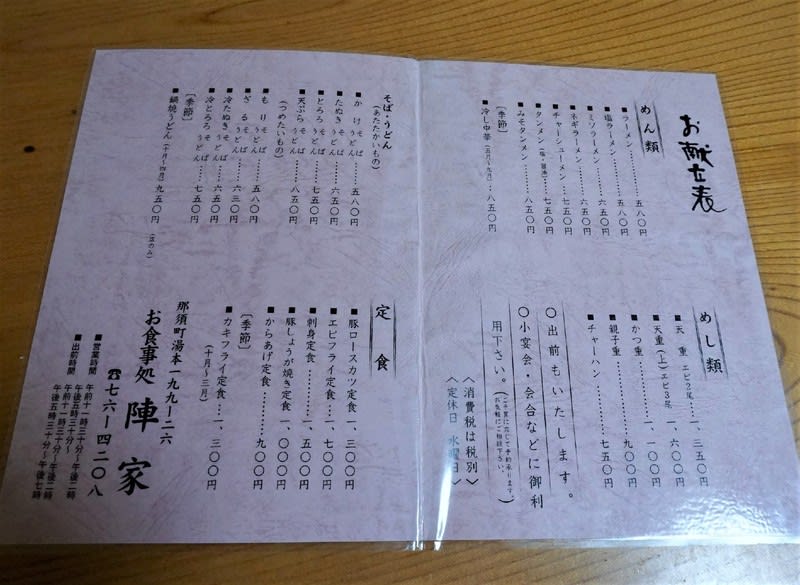 お献立表
めん類
■ラーメン………五八〇円
■塩ラーメン………五八〇円
■ミソラーメン………六五〇円
■ネギラーメン………六五〇円
■チャーシューメン………七五〇円
■タンメン(塩・醤油)………七五〇円
■みそタンメン………八五〇円
〔季節〕
■冷し中華(五月〜九月)…八五〇円
めし類
■天重 エビ2尾………一、三五〇円
■天重(上)エビ3尾………一、六〇〇円
■かつ重………一、一〇〇円
■親子重………九〇〇円
■チャーハン………七五〇円
○出前もいたします。
○小宴会・会合などに御利
用下さい。(ご予算に応じて予約承ります。お気軽にご相談下さい。)
〈消費税は税別〉
〈定休日 水曜日〉
そば・うどん
(あたたかいもの)
■かけ そば うどん………五八〇円
■たぬき そば うどん………六五〇円
■とろろ そば うどん………七五〇円
■天ぷら そば うどん………八五〇円
(つめたいもの)
■もり そば うどん………五八〇円
■ざる そば うどん………六三〇円
■冷たぬき そば うどん………六五〇円
■冷とろろ そば うどん………七五〇円
〔季節〕
■鍋焼うどん(十月〜四月)九五〇円
定食
■豚ロースカツ定食…一、三〇〇円
■エビフライ定食……一、七〇〇円
■刺身定食………一、五〇〇円
■豚しょうが焼き定食…一、〇〇〇円
■からあげ定食………九〇〇円
〔季節〕
■カキフライ定食……一、三〇〇円
(十月〜三月)
那須町湯本一九九ー二六
お食事処 陣家
☎七六ー四二〇八
■営業時間 午前十一時三十分〜午後二時
午後五時三十分〜
■出前時間 午前十一時三十分〜午後二時
午後五時三十分〜午後七時